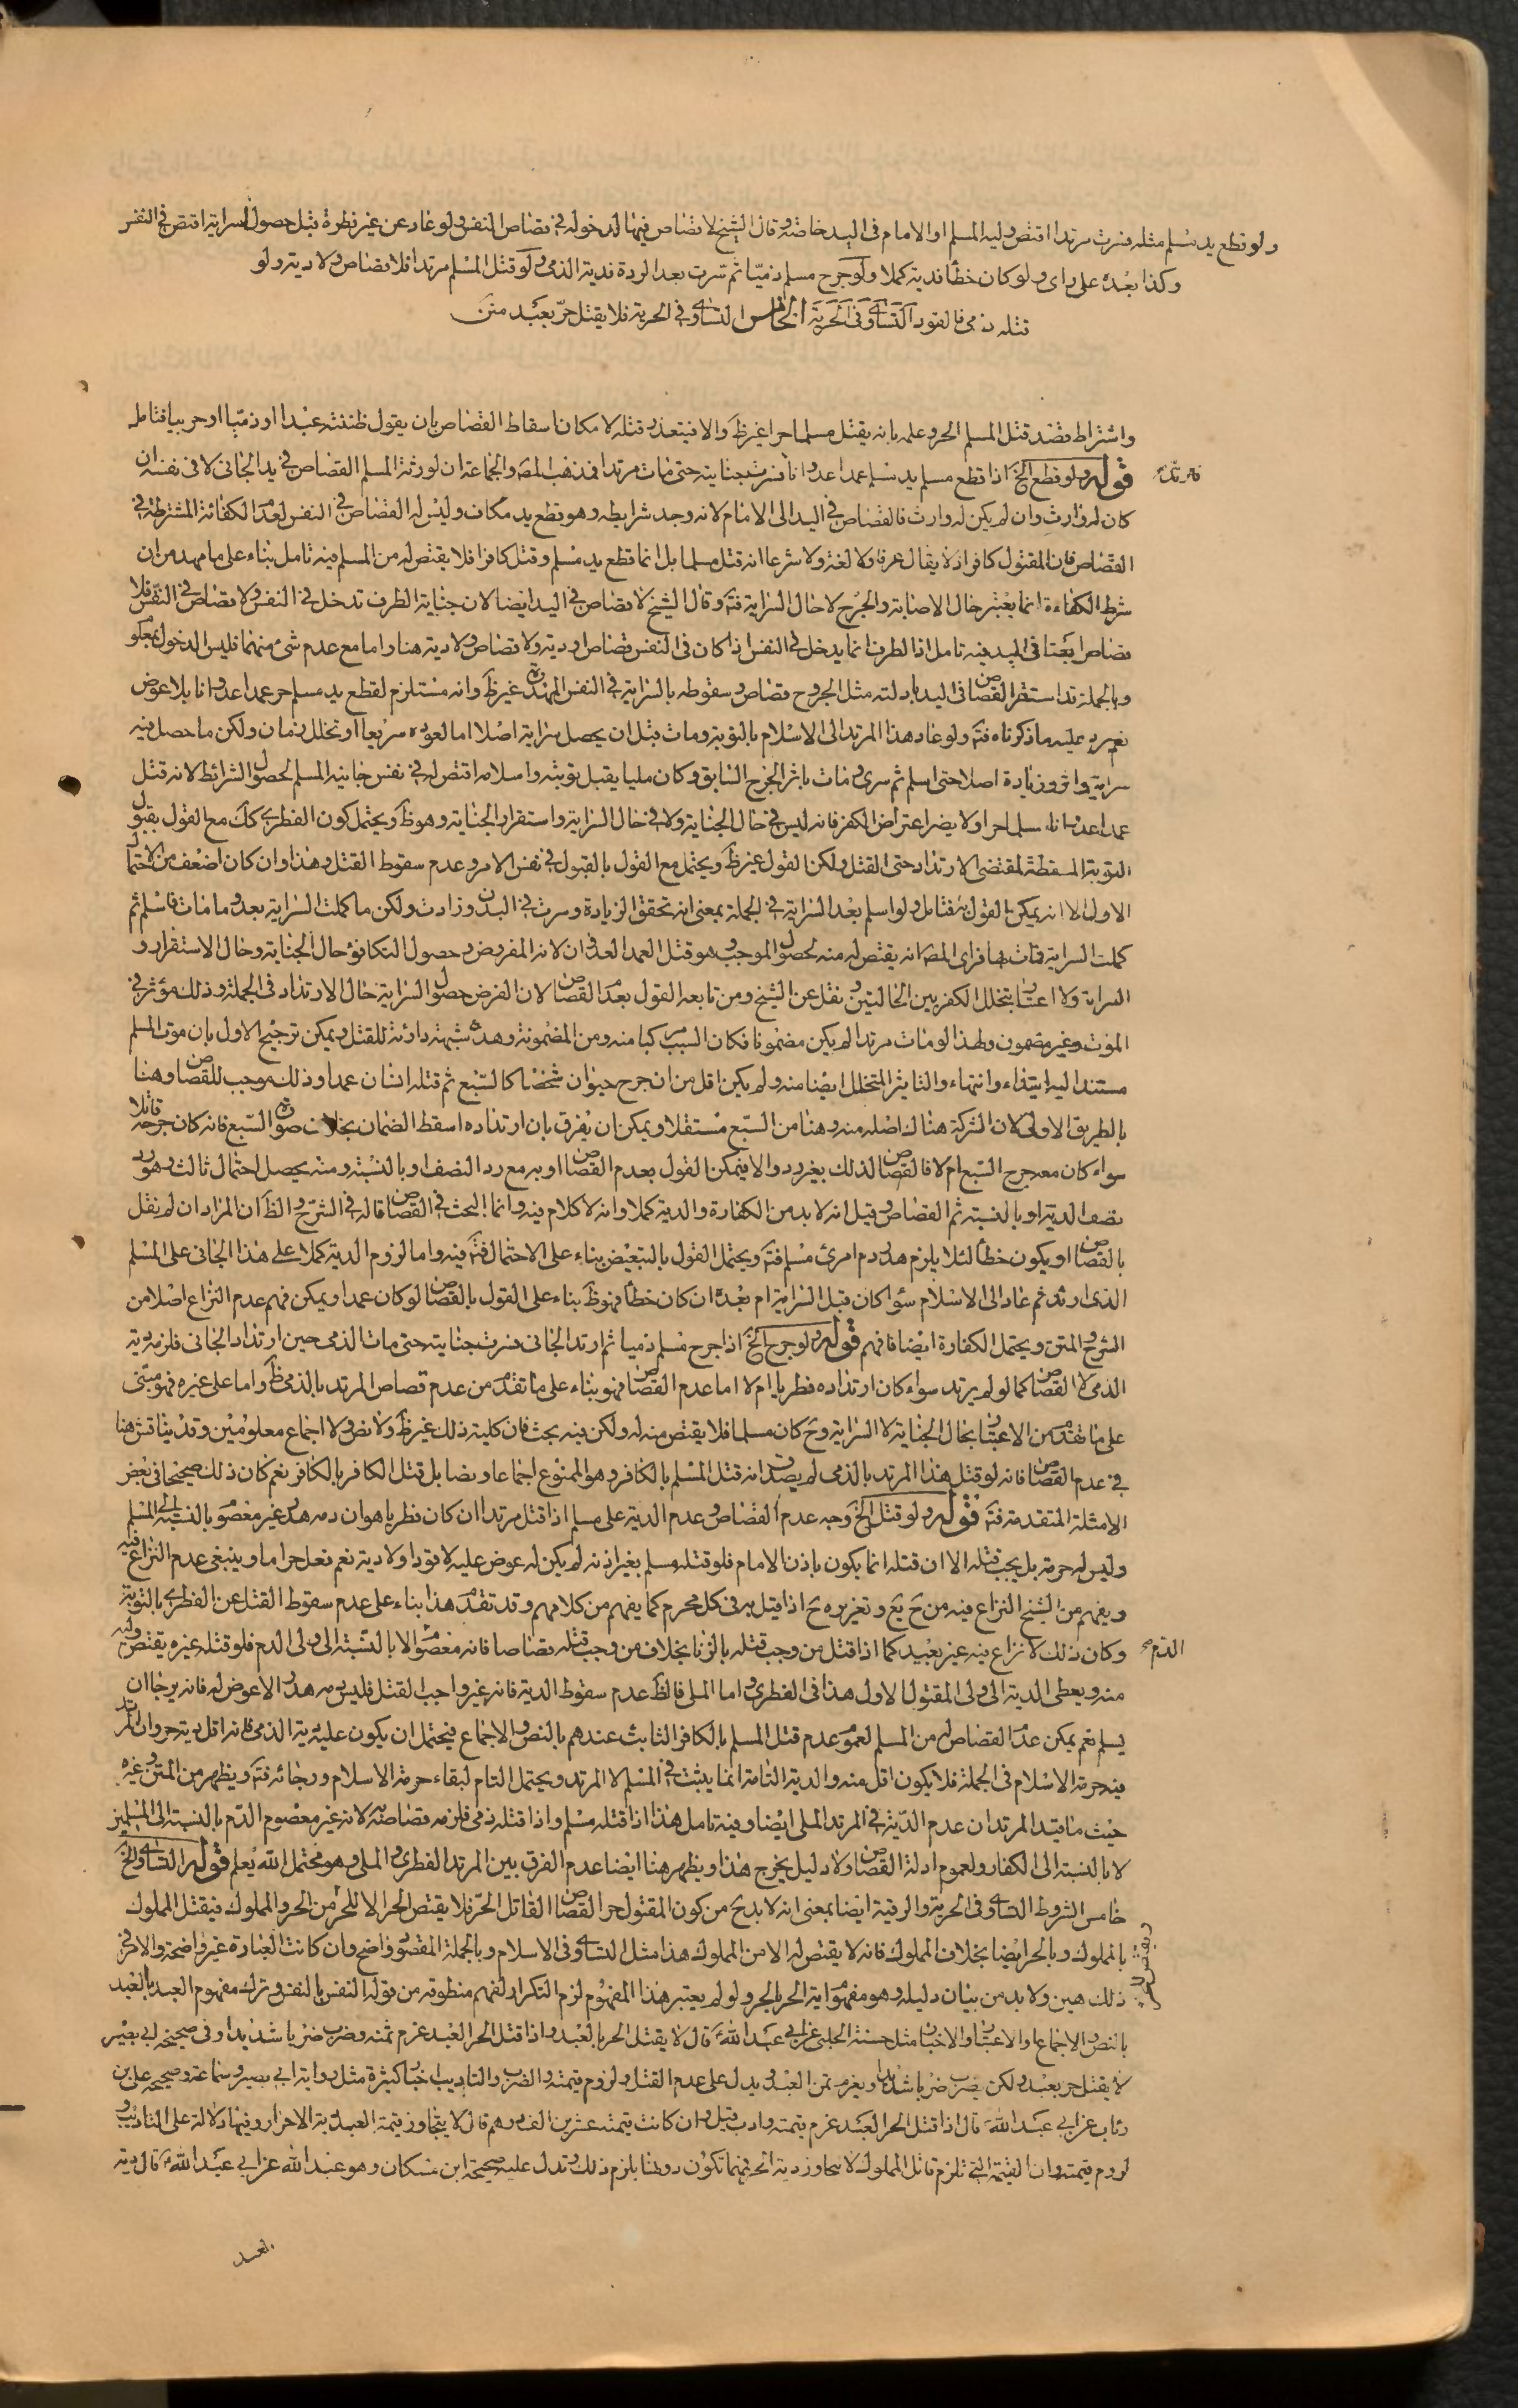 ولو قطع يد مسلم مثله فسرت مرتدا اقتص وليه المسلم او الامام فى اليد خاصة وقال الشيخ لا قصاص فيها لدخوله فى قصاص النفس ولو عاد عن غير فطرة قبل حصول السراية اقتص فى النفس
وكذا بعده على راى ولو كان خطأ فدية كملا ولو جرح مسلم ذميا ثم سرت بعد الردة فدية الذمى ولو قتل المسلم مرتدا فلا قصاص ولا دية ولو
قتله ذمى فالقود التساوى فى الحرية الخامس التساوى فى الحرية فلا يقتل حر بعبد متن
واشتراط قصد قتل المسلم الحر وعلمه بانه يقتل مسلما حرا غير ظ والا فيتعذر قتله لا مكان اسقاط القصاص بان يقول ظننته عبدا او ذميا او حربيا فتامل
قوله ولو قطع الخ اذا قطع مسلم يد مسلم عمدا عدوانا فسرت جنايته حتى مات مرتدا فمذهب المص والجماعة ان لورثة المسلم القصاص فى يد الجانى لا فى نفسه ان
كان له وارث وان لم يكن له وارث فالقصاص فى اليد الى الامام لانه وجد شرايطه وهو قطع يد مكاف وليس له القصاص فى النفس لعدم الكفائة المشترطة فى
القصاص فان المقتول كافر اذ لا يقال عرفا ولا لغة ولا شرعا انه قتل مسلما بل انما قطع يد مسلم وقتل كافرا فلا يقتص له من المسلم فيه تامل بناء على ما مهد من ان
شرط الكفاءة انما يعتبر حال الاصابة والجرح لا حال السراية فت وقال الشيخ لا قصاص فى اليد ايضا لان جناية الطرف تدخل فى النفس ولا قصاص فى النفس فلا
قصاص ايضا فى اليد فيه تامل اذ الطرف انما يدخل فى النفس اذا كان فى النفس قصاص او دية ولا قصاص ولا دية هنا واما مع عدم شئ منهما فليس الدخول بمعلو
وبالجملة قد استقر القصاص فى اليد بادلته مثل الجروح قصاص وسقوطه بالسراية فى النفس المهدورة غير ظ وانه مستلزم لقطع يد مسلم حر عمدا عدوانا بلا عوض
نعم يرد عليه ما ذكرناه فت ولو عاد هذا المرتد الى الاسلام بالتوبة ومات قبل ان يحصل سراية اصلا اما لعوده سريعا او تخلل زمان ولكن ما حصل فيه
سراية واثر وزيادة اصلا حتى اسلم ثم سرى ومات باثر الجرح السابق وكان مليا يقبل توبته واسلامه اقتص له فى نفس جانيه المسلم لحصول الشرائط لانه قتل
عمدا عدوانا مسلما حرا ولا يضر اعتراض الكفر فانه ليس فى حال الجناية ولا فى حال السراية واستقرار الجناية وهو ظ ويحتمل كون الفطرى كك مع القول بقبول
التوبة المسقطة لمقتضى الارتداد حتى القتل ولكن القول غير ظ ويحتمل مع القول بالقبول فى نفس الامر وعدم سقوط القتل وهذا وان كان اضعف من الاحتما
الاول الا انه يمكن القول به فتامل ولو اسلم بعد السراية فى الجملة بمعنى انه تحقق الزيادة وسرت فى البدن وزادت ولكن ما كملت السراية بعد وما مات فاسلم ثم
كملت السراية فمات بها فراى المص انه يقتص له منه لحصول الموجب وهو قتل العمد العدوان لانه المفروض وحصول التكافؤ حال الجناية وحال الاستقرار و
السراية ولا اعتبار بتخلل الكفر بين الحالتين ونقل عن الشيخ ومن تابعه القول بعدم القصاص لان الفرض حصول السراية حال الارتداد فى الجملة وذلك مؤثر فى
الموت وغير مضمون ولهذا لو مات مرتدا لم يكن مضمونا فكان السبب مركبا منه ومن المضمونة وهذه شبهة دارئة للقتل ويمكن ترجيح الاول بان موت المسلم
مستندا اليه ابتداء وانتهاء والتاثير المتخلل ايضا منه ولم يكن اقل من ان جرح حيوان شخصا كالسبع ثم قتله انسان عمدا وذلك موجب للقصاص وهنا
بالطريق الاولى لان الشركة هنالك اصله منه وهنا من السبع مستقلا ويمكن ان يفرق بان ارتداده اسقط الضمان بخلاف صورة السبع فانه كان جرحه قاتلا
سواء كان معه جرح السبع ام لا فالقصاص لذلك بغير رد والا فيمكن القول بعدم القصاص او به مع رد النصف او بالنسبة ومنه يحصل احتمال ثالث وهو رد
نصف الدية او بالنسبة ثم القصاص وقيل انه لا بد من الكفارة والدية كملا وانه لا كلام فيه وانما البحث فى القصاص قاله فى الشرح والظ ان المراد ان لم نقل
بالقصاص او يكون خطأ لئلا يلزم هدر دم امرئ مسلم فت ويحتمل القول بالتبعيض بناء على الاحتمال فت فيه واما لزوم الدية كملا على هذا الجانى على المسلم
الذى ارتد ثم عاد الى الاسلام سواء كان قبل السراية ام بعده ان كان خطأ فهو ظ بناء على القول بالقصاص لو كان عمدا ويمكن فهم عدم النزاع اصلا من
الشرح والمتن ويحتمل الكفارة ايضا فافهم قوله ولو جرح الخ اذا جرح مسلم ذميا ثم ارتد الجانى فسرت جنايته حتى مات الذمى حين ارتداد الجانى فلزمه دية
الذمى لا القصاص كما لو لم يرتد سواء كان ارتداده فطريا ام لا اما عدم القصاص فهو بناء على ما تقدم من عدم قصاص المرتد بالذمى ظ واما على غيره فهو مبنى
على ما تقدم من الاعتبار بحال الجناية لا السراية وح كان مسلما فلا يقتص منه له ولكن فيه بحث فان كلية ذلك غير ظ ولا نص ولا اجماع معلومين وقد يناقش هنا
فى عدم القصاص فانه لو قتل هذا المرتد بالذمى لم يصدق انه قتل المسلم بالكافر وهو الممنوع اجماعا ونصا بل قتل الكافر بالكافر نعم كان ذلك صحيحا فى بعض
الامثلة المتقدمة فت قوله ولو قتل الخ وجه عدم القصاص وعدم الدية على مسلم اذا قتل مرتدا ان كان فطريا هو ان دمه هدر غير معصوم بالنسبة الى المسلم
وليس له حرمة بل يجب قتله الا ان قتله انما يكون باذن الامام فلو قتله مسلم بغير اذنه لم يكن له عوض عليه لا قودا ولا دية نعم فعل حراما وينبغى عدم النزاع فيه
ويفهم من الشيخ النزاع فيه من ح يع وتعزيره ح اذا قيل به فى كل محرم كما يفهم من كلامهم وقد تقدم هذا بناء على عدم سقوط القتل عن الفطرى بالتوبة
وكان ذلك لا نزاع فيه غير بعيد كما اذا قتل من وجب قتله بالزنا بخلاف من وجب قتله قصاصا فانه معصوم الا بالنسبة الى ولى الدم فلو قتله غيره يقتص وليه
الدم
منه ويعطى الدية الى ولى المقتول الاول هذا فى الفطرى واما الملى فالظ عدم سقوط الدية فانه غير واجب القتل فليس دمه هدرا لا عوض له فانه يرجا ان
يسلم نعم يمكن عدم القصاص له من المسلم لعموم عدم قتل المسلم بالكافر الثابت عندهم بالنص والاجماع فيحتمل ان يكون عليه دية الذمى فانه اقل دية حر وان المرتد
فيه حرمة الاسلام فى الجملة فلا يكون اقل منه والدية التامة انما يثبت فى المسلم لا المرتد ويحتمل التام لبقاء حرمة الاسلام ورجائه فت ويظهر من المتن وغيره
حيث ما قيد المرتد ان عدم الدية فى المرتد الملى ايضا وفيه تامل هذا اذا قتله مسلم واذا قتله ذمى فلزمه قصاصه لانه غير معصوم الدم بالنسبة الى المسلمين
لا بالنسبة الى الكفار ولعموم ادلة القصاص ولا دليل يخرج هذا ويظهر هنا ايضا عدم الفرق بين المرتد الفطرى والملى وهو محتمل الله يعلم قوله التساوى الخ
خامس الشروط التساوى فى الحرية والرقية ايضا بمعنى انه لا بد ح من كون المقتول حرا لقصاص القاتل الحر فلا يقتص الحر الا للحر من الحر والمملوك فيقتل المملوك
بالمملوك وبالحر ايضا بخلاف المملوك فانه لا يقتص له الا من المملوك هذا مثل التساوى فى الاسلام وبالجملة المقصود واضح وان كانت العبارة غير واضحة والامر فى
ذلك هين ولا بد من بيان دليله وهو مفهوم اية الحر بالحر ولو لم يعتبر هذا المفهوم لزم التكرار لفهم منطوقه من قوله النفس بالنفس وترك مفهوم العبد بالعبد
بالنص والاجماع والاعتبار والاخبار مثل حسنة الحلبى عن ابى عبد الله ع قال لا يقتل الحر بالعبد واذا قتل الحر العبد غرم ثمنه وضرب ضربا شديدا وفى صحيحة ابى بصير
لا يقتل حر بعبد ولكن يضرب ضربا شديدا ويغرم ثمن العبد ويدل على عدم القتل ولزوم قيمته والضرب والتاديب اخبار كثيرة مثل رواية ابى بصير وسماعة وصحيحة على بن
رئاب عن ابى عبد الله ع قال اذا قتل الحر العبد غرم قيمته وادب قيل وان كانت قيمته عشرين الف درهم قال لا يتجاوز قيمة العبد دية الاحرار وفيها دلالة على التاديب و
لزوم قيمته وان القيمة التى تلزم قاتل المملوك لا يتجاوز دية الحر فمهما تكون دونها يلزم ذلك وتدل عليه صحيحة ابن مسكان وهو عبد الله عن ابى عبد الله ع قال دية
العبد